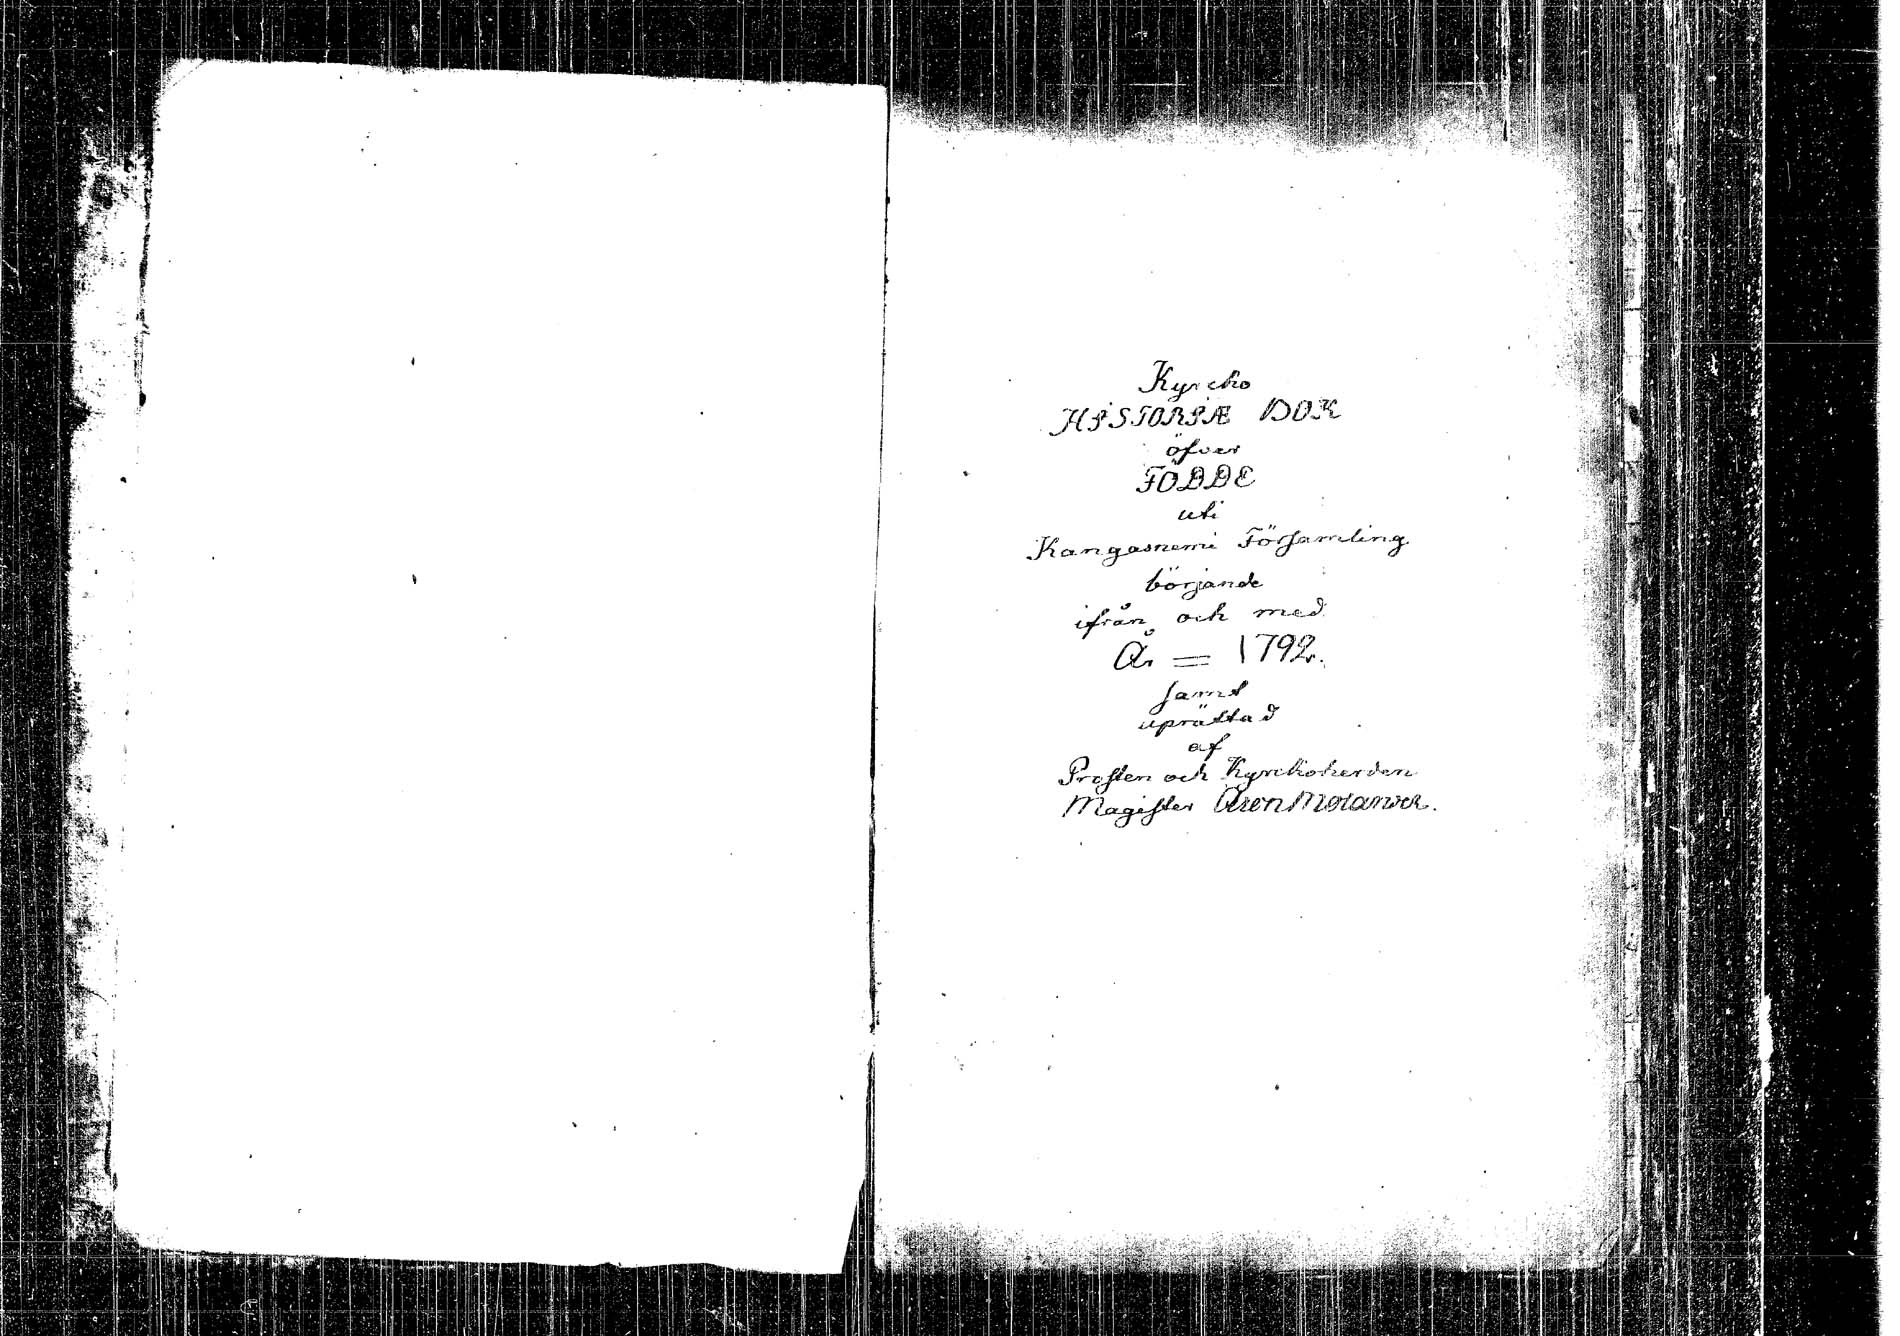 Kyrcko
HISTORIÆ BOK
öfver
FÖDDE
uti
Kangasnemi Församling
börjande
ifrån och med
År = 1792.
samt
uprättad
af
Prosten och Kyrckoherden
Magister Aron Molander.